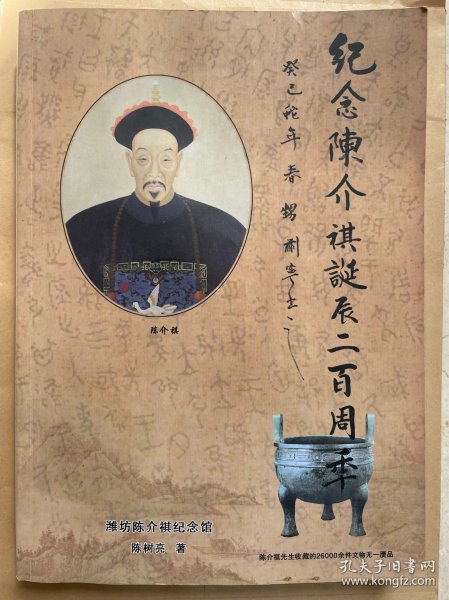 纪念陳介祺誕辰二百周年
癸巳蛇年春
陈介祺
潍坊陈介祺纪念馆
陈树亮 著
陈介祺先生收藏的26000余件文物无一赝品
孔夫子旧书网
kongfz.com